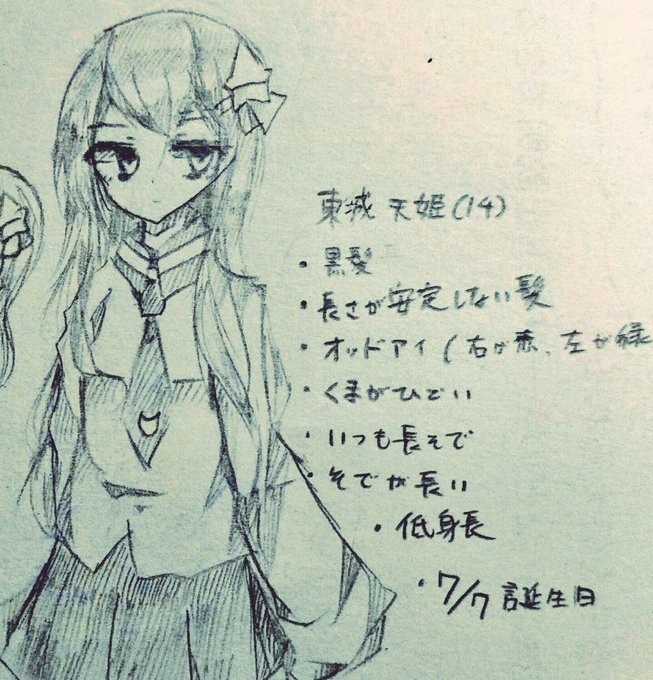 東城 天姫(14)
・黒髪
・長さが安定しない髪
・オッドアイ(右が赤、左が緑
・くまがひどい
・いつも長そで
・そでが長い
・低身長
・7/7 誕生日